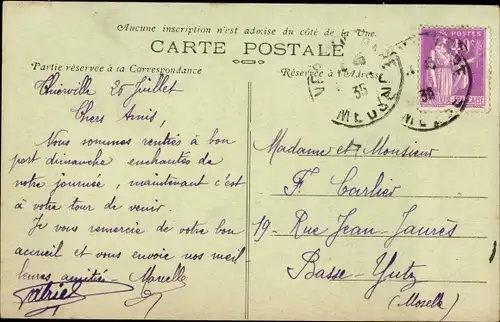 Aucune inscription n'est admise du côté de la Vue.
CARTE POSTALE
Partie réservée à la Correspondance
Réservée à l'Adresse
25 Juillet
Chers Amis,
Nous sommes rentrés à bon
port dimanche enchantés de
notre journée, maintenant c'est
à votre tour de venir.
Je vous remercie de votre bon
accueil et vous envoie nos meil
leures amitiés - Marcelle
Madame et Monsieur
F. Carlier
19 - Rue Jean-Jaurès
Basse-Yutz
(Moselle)
POSTES
35
MEUSE
35